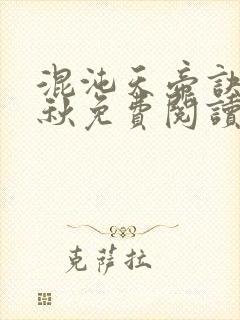 混沌天帝訣
秋免費閱讀
克薩拉